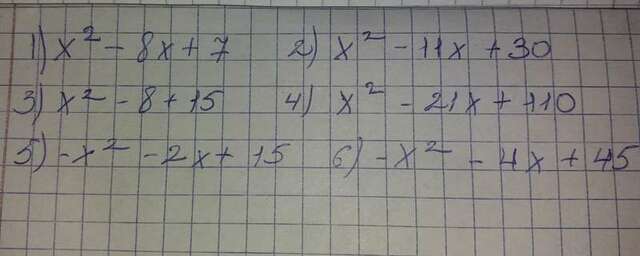 1) x² - 8x + 7 2) x² - 11x + 30
3) x² - 8 + 15 4) x² - 21x + 110
5) -x² - 2x + 15 6) -x² - 4x + 45